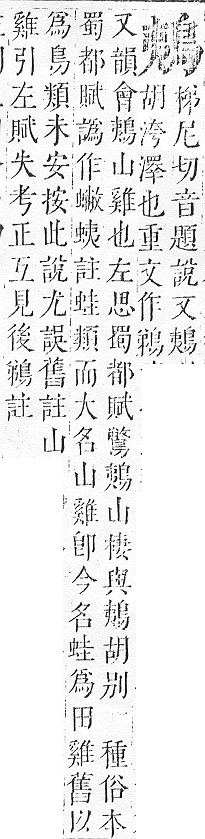 鴺
梯尼切音題說文鴺
胡洿澤也重文作鵜
又韻會鴺山雞也左思蜀都賦鷩鴺山棲與鴺胡別一種俗本
蜀都賦譌作蟞蛦註蛙類而大名山雞卽今名蛙爲田雞舊以
爲鳥類未安按此說尤誤舊註山
雞引左賦失考正互見後鵜註